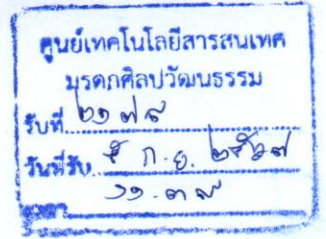 ศูนย์เทคโนโลยีสารสนเทศ
มรดกศิลปวัฒนธรรม
รับที่
วันที่รับ ก.ย. ๒๕๖๗
เวลา ๑๑.๓๙